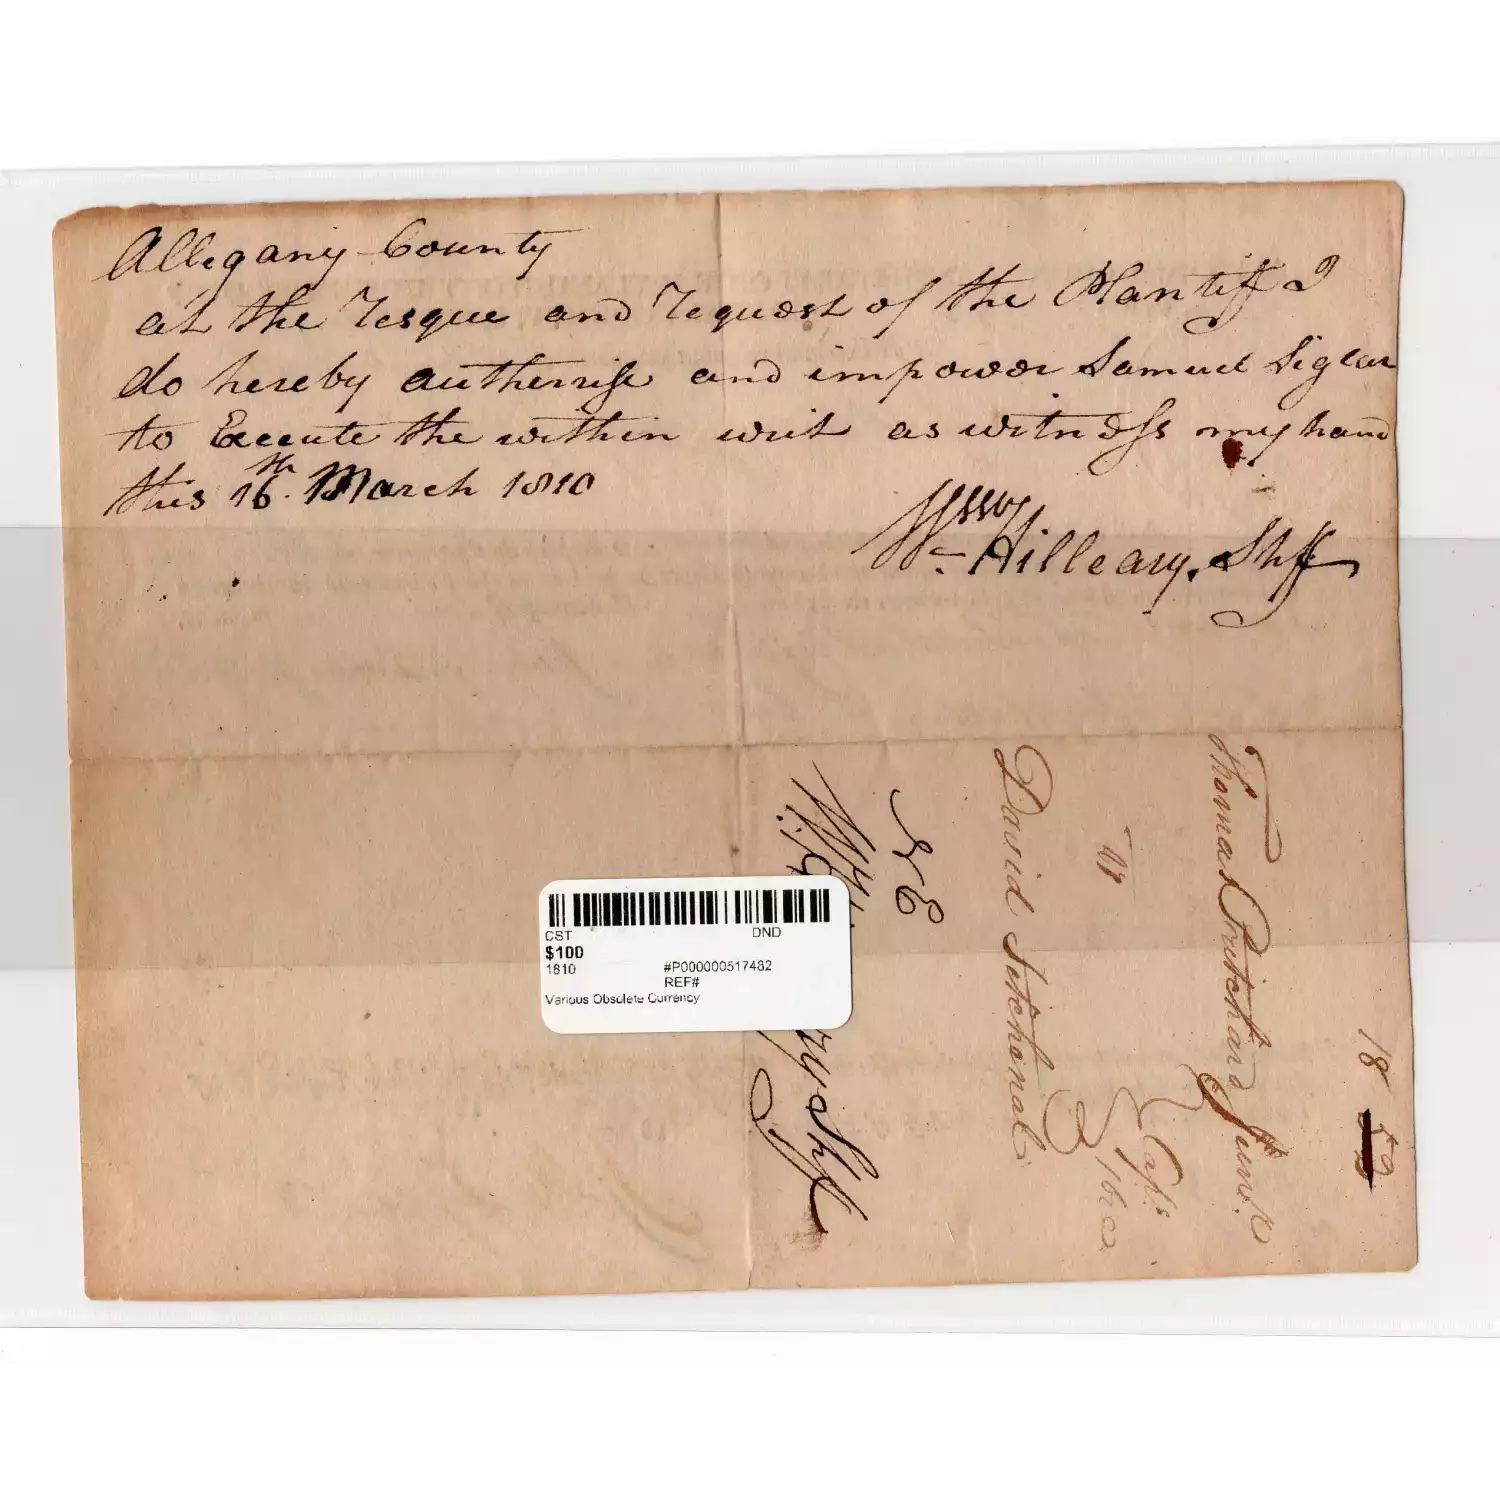 Allegany County
at the resque and request of the Plantiff I
do hereby autherrise and impower Samuel Siglar
to Execute the within writ as witness my hand
this 16th. March 1810
Wm Hilleary. Shff
18
Thomas Pritchard Junr.
vs
Caps.
David
N E
Shff
CST
DND
$100
1810
#P000000517482
REF#
Various Obsolete Currency